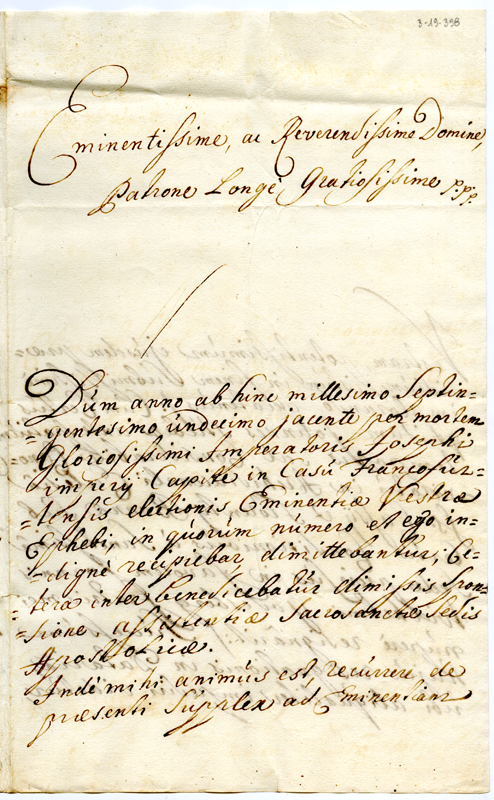 3-19-398
Eminentissime, ac Reverendissime Domine,
Patrone Longè Gratiosissime p.p.p.
Dum anno ab hinc millesimo Septin-
-gentesimo undecimo jacente per mortem
Gloriosissimi Imperatoris Josephi
imperÿ Capite in Casu Francofur-
-tensis electionis Eminentiæ Vestræ
Ephebi, in quorum número et ego in-
-dignè recipiebar, dimittebantur; Ce-
-tera inter benedicebatur dimissis Spon-
-sione assistentiæ Sacrosanctæ Sedis
Apostolicæ.
Indè mihi animus est, recurrere de
præsenti Supplex ad Eminentiam